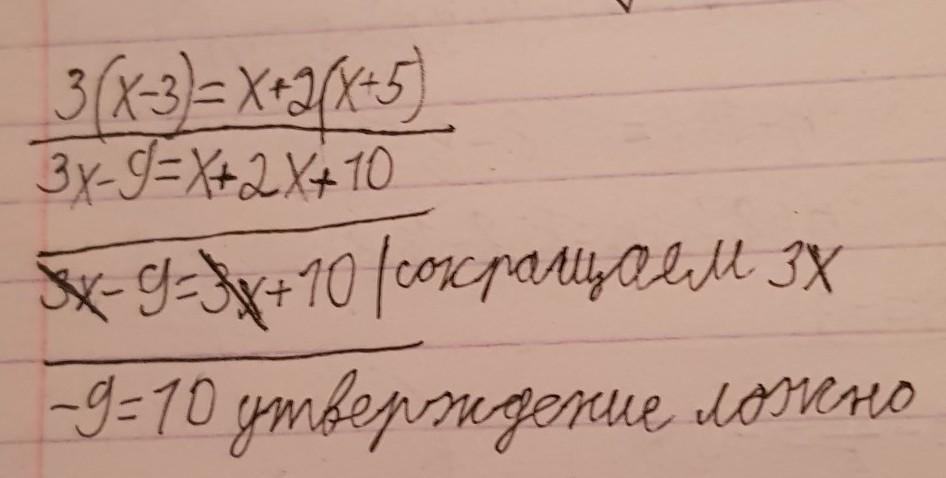 3(x-3)=x+2(x+5)
3x-9=x+2x+10
3x-9=3x+10 | сокращаем 3x
-9=10 утверждение ложно